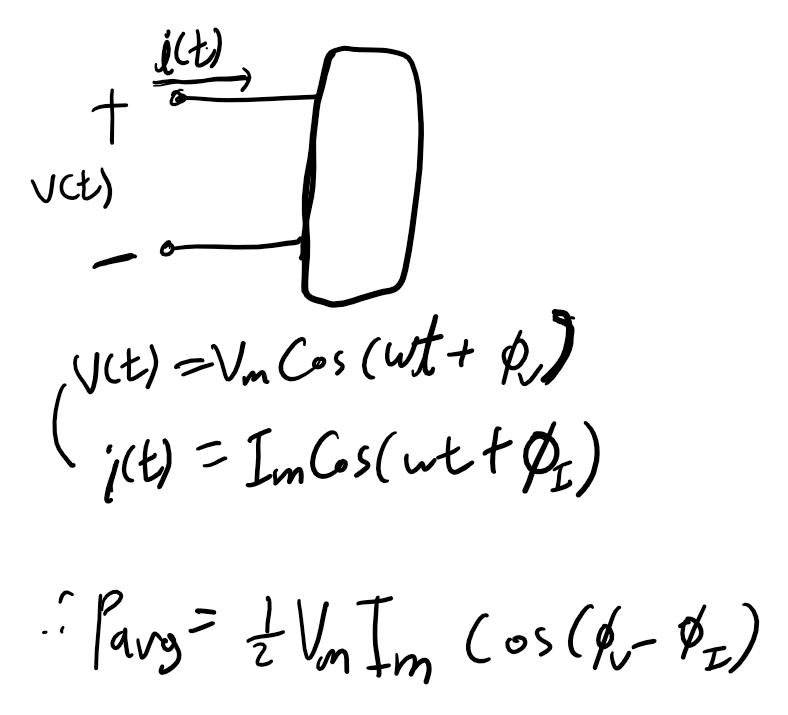 i(t)
+
v(t)
−
v(t) = Vm Cos(wt + ϕv)
i(t) = Im Cos(wt + ϕI)
∴ Pavg = 1/2 Vm Im Cos(ϕv − ϕI)